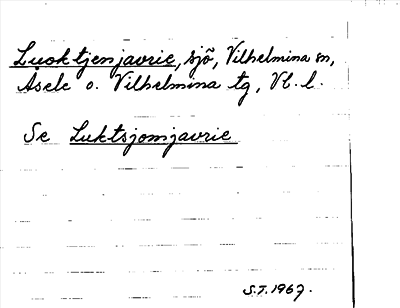 Luoktjenjavrie, sjö, Vilhelmina sn,
Åsele o. Vilhelmina tg, Vb. l.
Se Luktsjomjavrie
S.T. 1967.